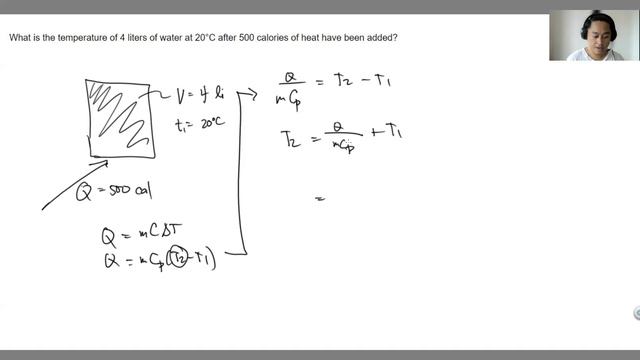 What is the temperature of 4 liters of water at 20°C after 500 calories of heat have been added?
V = 4 li
t₁ = 20°C
Q = 500 cal
Q = mCΔT
Q = mCp(T₂ - T₁)
Q / mCp = T₂ - T₁
T₂ = Q / mCp + T₁
=